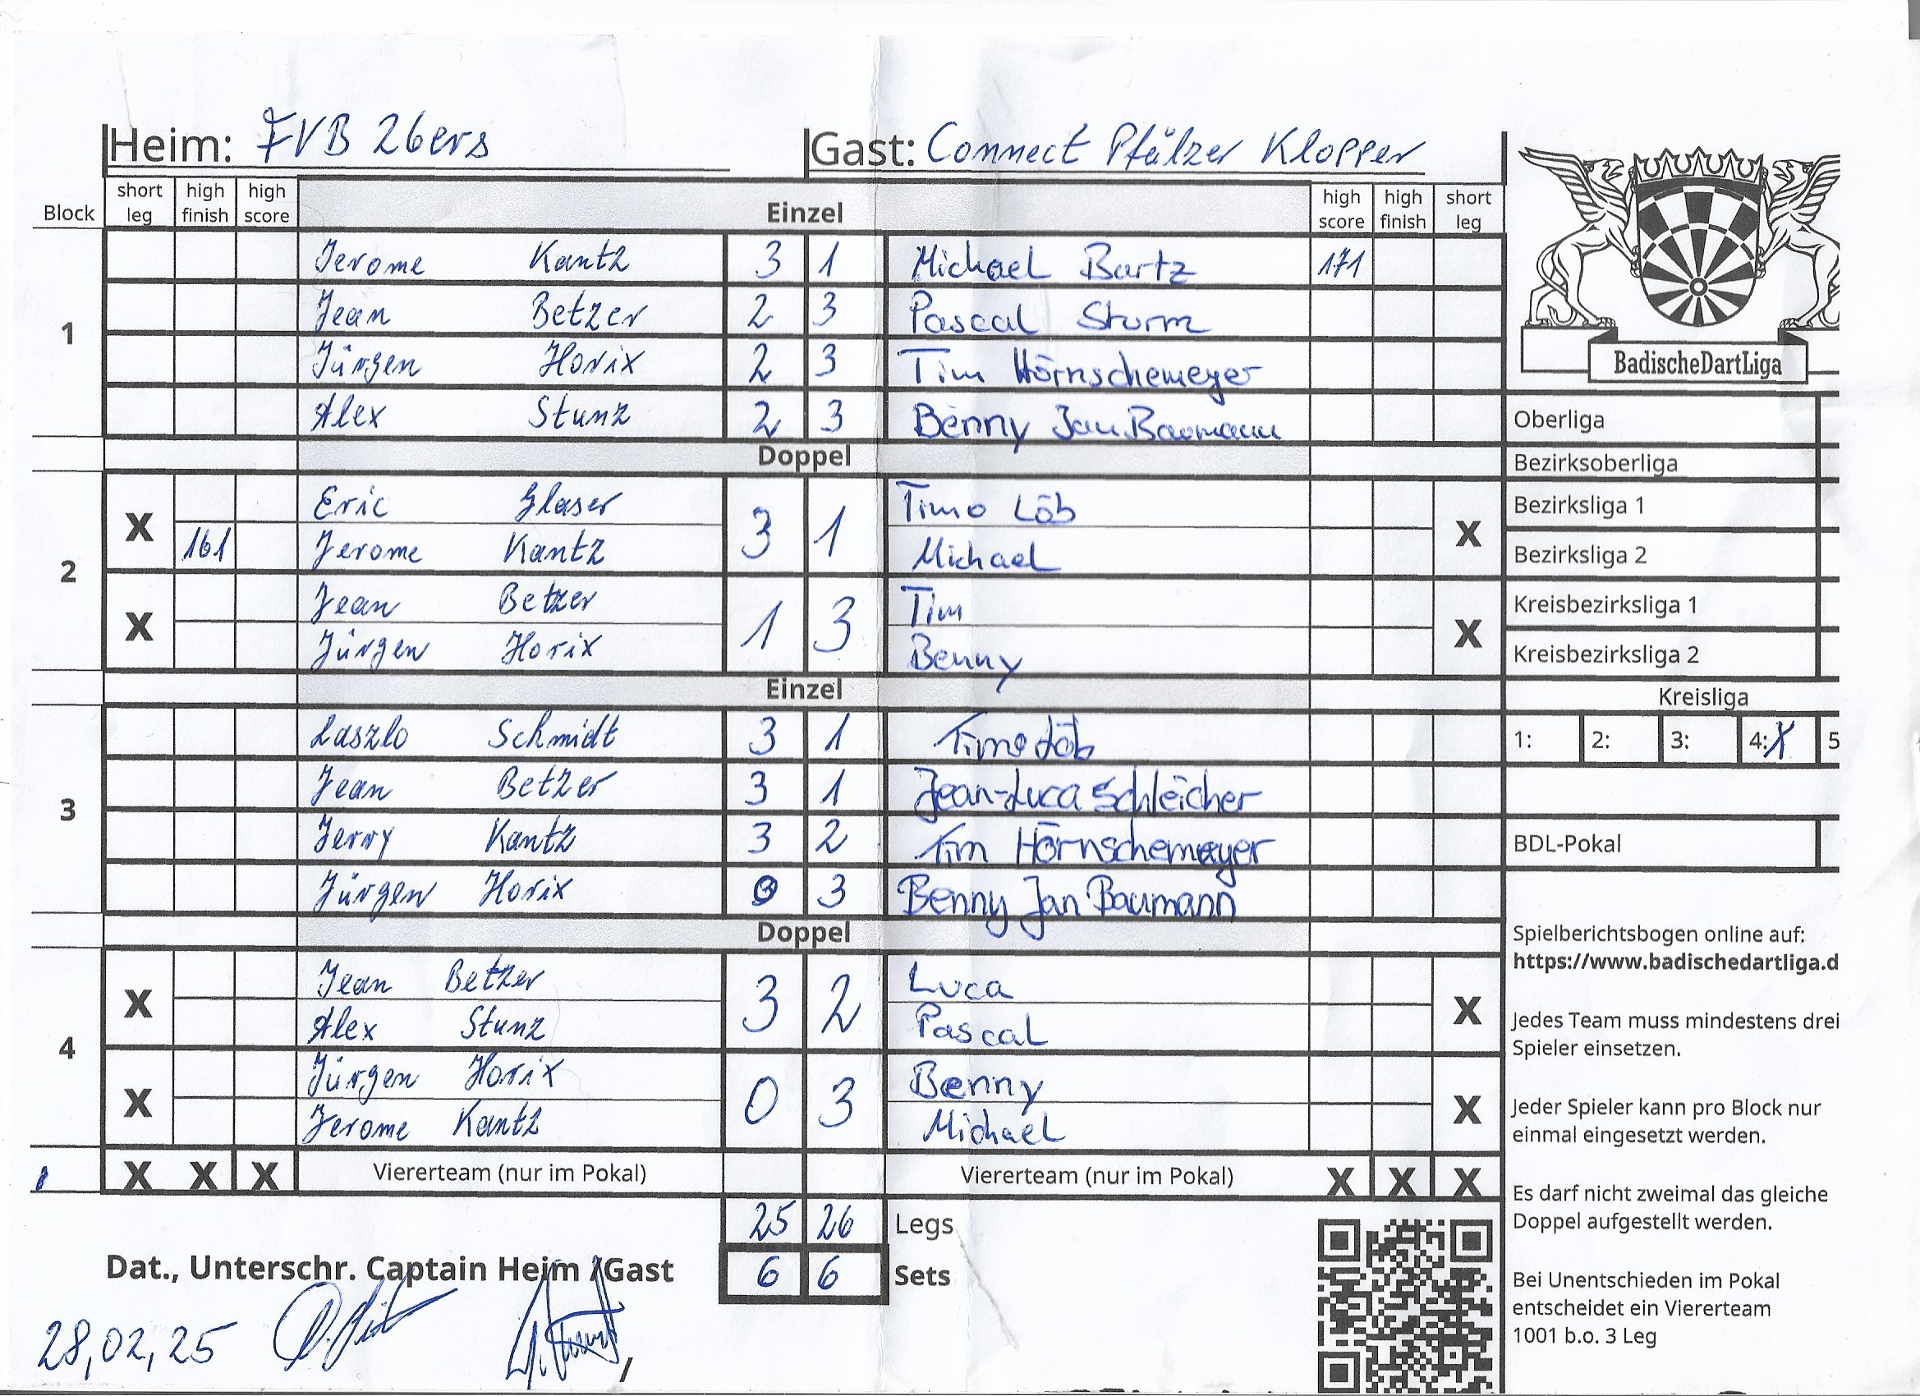 Heim: FVB 26ers Gast: Connect Pfälzer Klopper
Block short leg high finish high score Einzel high score high finish short leg
1
Jerome Kantz 3 1 Michael Bartz 171
Jean Betzer 2 3 Pascal Sturm
Jürgen Horix 2 3 Tim Hörnschemeyer
Alex Stunz 2 3 Benny Jan Baumann
Doppel
2
X Eric Glaser 3 1 Timo Löb X
161 Jerome Kantz Michael
X Jean Betzer 1 3 Tim X
Jürgen Horix Benny
Einzel
3
Laszlo Schmidt 3 1 Timo Löb
Jean Betzer 3 1 Jean-Luca Schleicher
Jerry Kantz 3 2 Tim Hörnschemeyer
Jürgen Horix 0 3 Benny Jan Baumann
Doppel
4
X Jean Betzer 3 2 Luca X
Alex Stunz Pascal
X Jürgen Horix 0 3 Benny X
Jerome Kantz Michael
X X X Viererteam (nur im Pokal) Viererteam (nur im Pokal) X X X
25 26 Legs
6 6 Sets
Dat., Unterschr. Captain Heim /Gast
28,02,25
BadischeDartLiga
Oberliga
Bezirksoberliga
Bezirksliga 1
Bezirksliga 2
Kreisbezirksliga 1
Kreisbezirksliga 2
Kreisliga
1: 2: 3: 4: X 5
BDL-Pokal
Spielberichtsbogen online auf:
https://www.badischedartliga.d
Jedes Team muss mindestens drei
Spieler einsetzen.
Jeder Spieler kann pro Block nur
einmal eingesetzt werden.
Es darf nicht zweimal das gleiche
Doppel aufgestellt werden.
Bei Unentschieden im Pokal
entscheidet ein Viererteam
1001 b.o. 3 Leg